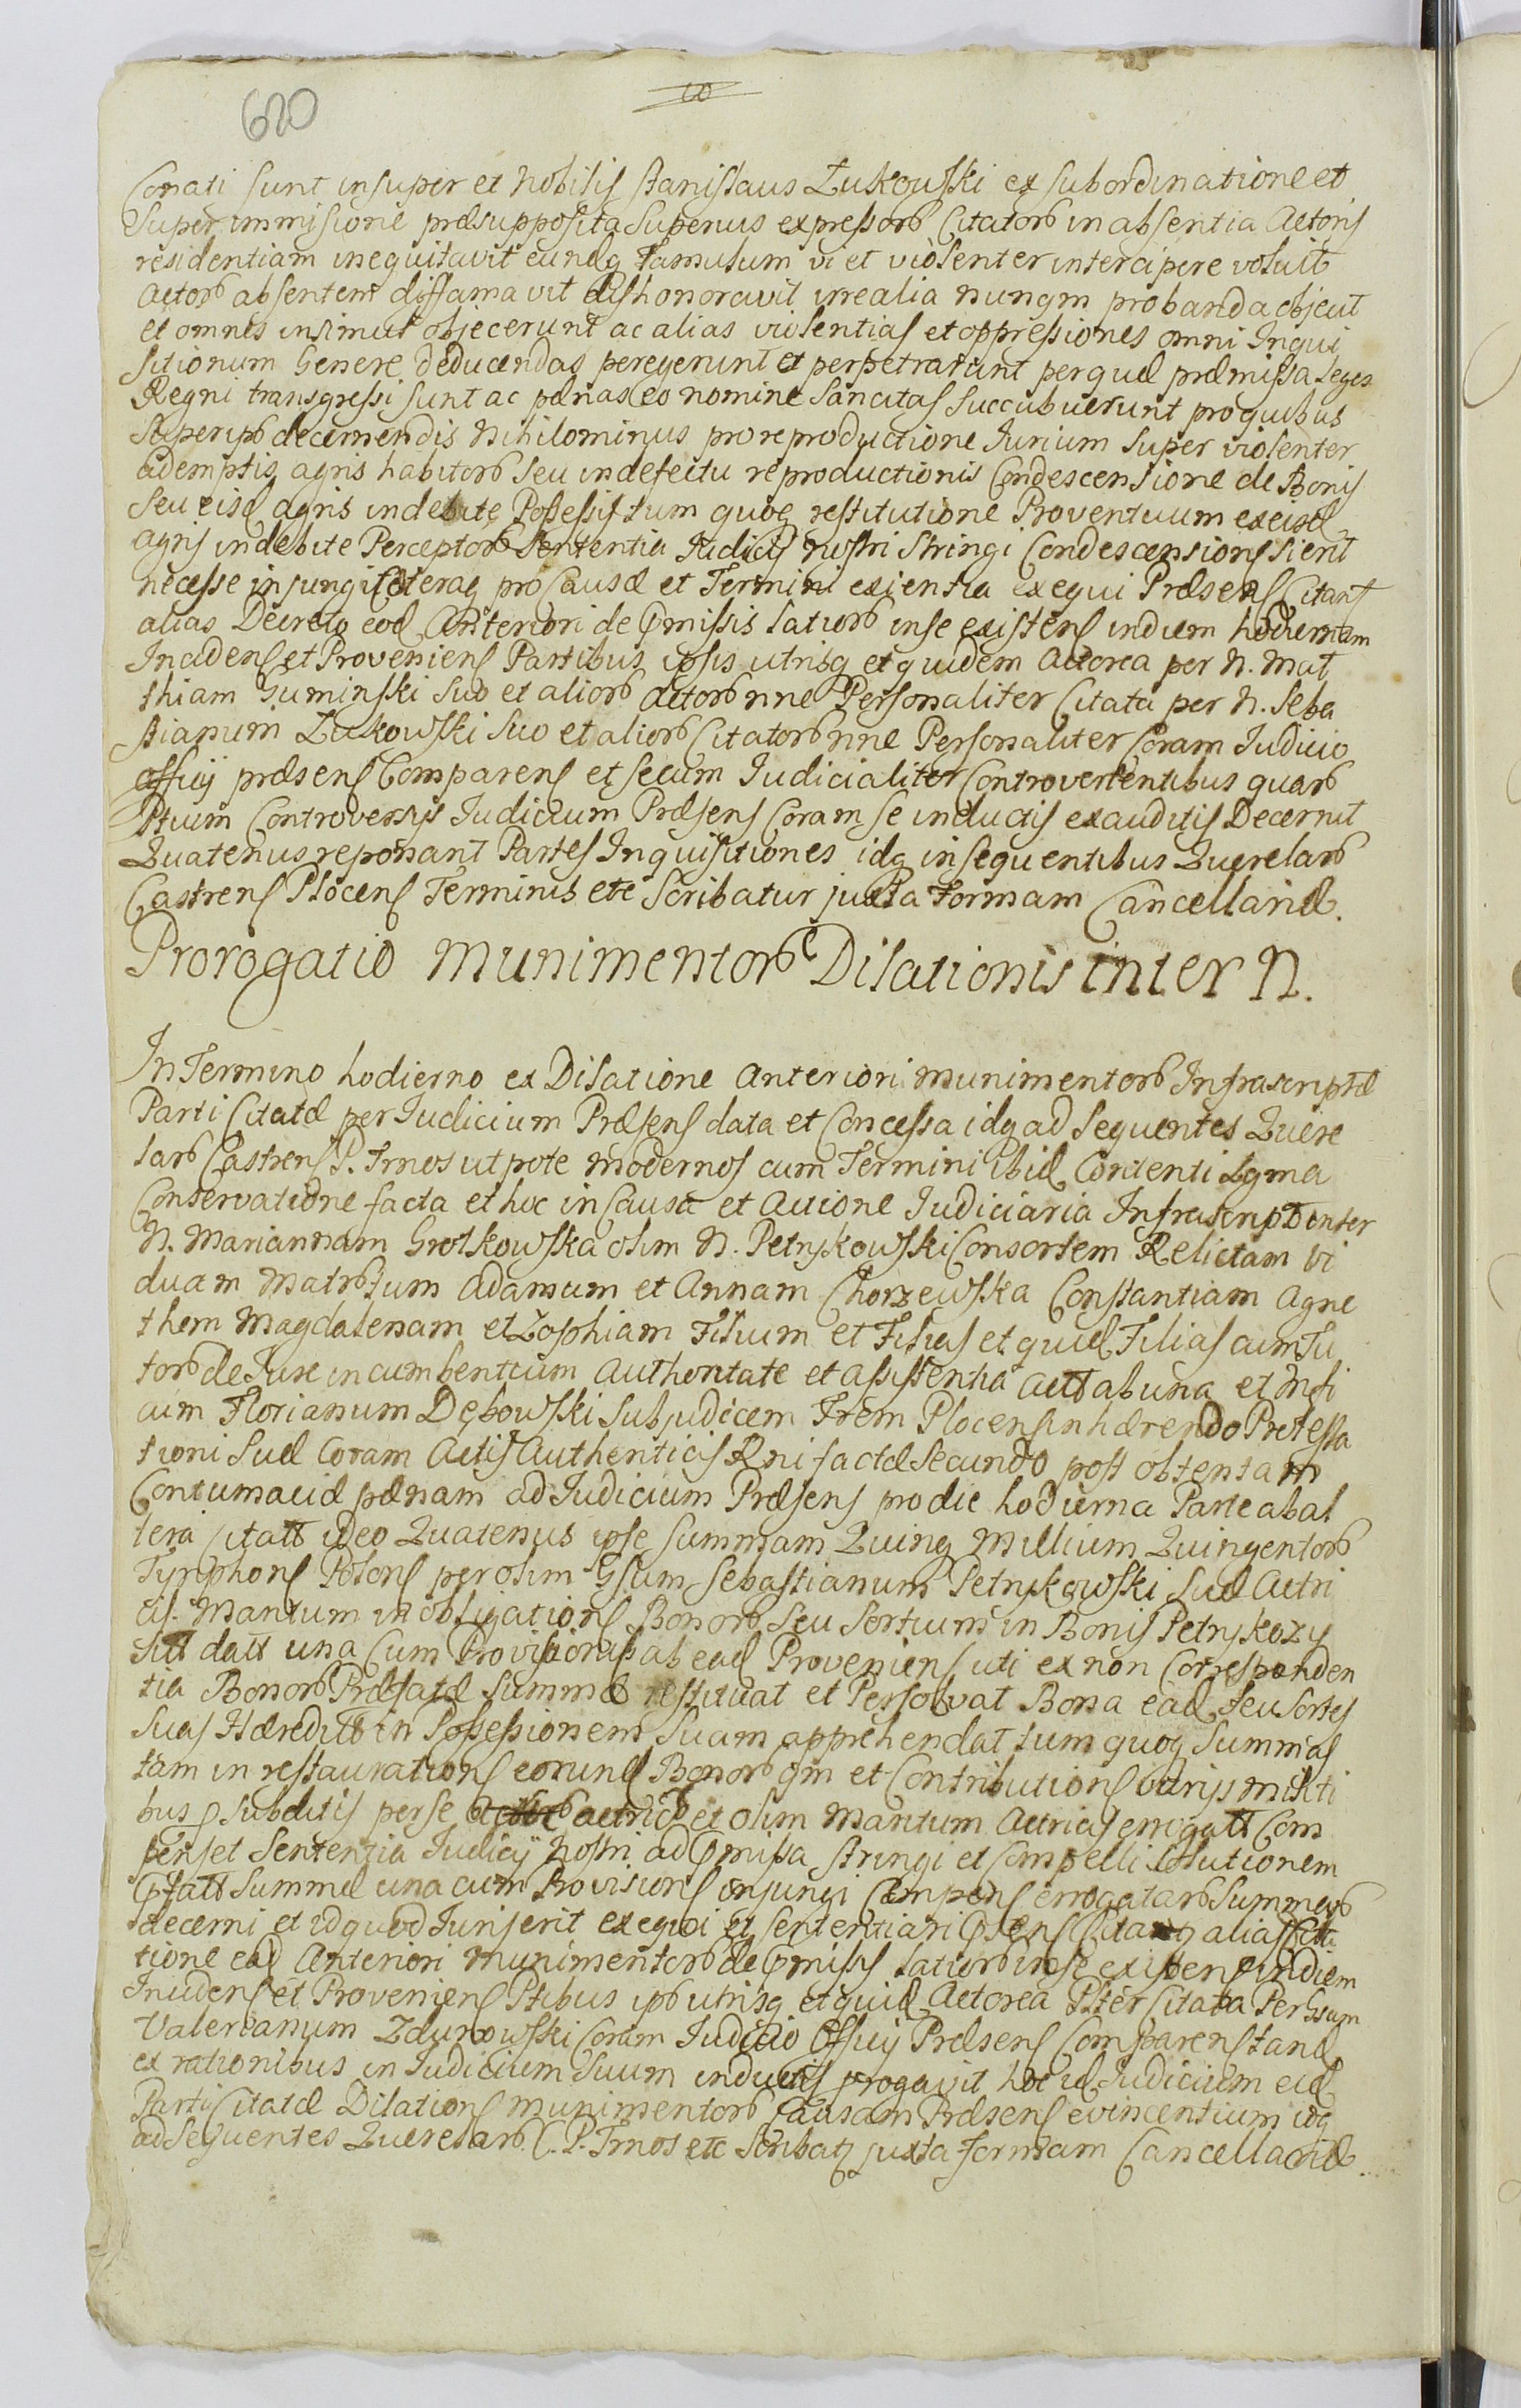 620
Conati sunt insuper et Nobilis Stanislaus Łukowski ex subordinatione et
super immisione præsupposita Superius expressorb Citatorb in absentia Actoris
residentiam inequitavit eundq famulum vi et violenter intercipere voluit
Actorb absentem diffamavit dishonoravit irrealia nunqm probanda objecit
et omnes insimul objecerunt ac alias violentias et oppressiones omni Inqui
sitionum Genere deducendas peregerunt et perpetrarunt per quæ præmissa Leges
Regni transgressi sunt ac pænas eo nomine Sancitas Succubuerunt pro quibus
Superipb decernendis Nihilominus pro reproductione Iurium super violenter
ademptis agris habitorb seu in defectu reproductionis Condescensione de Bonis
seu eisd agris indebite Possessis tum quoq restitutione Proventuum ex eisd
agris indebite Perceptorb Sententia Iudicij nostri Stringi Condescensions si erit
necesse injungi Cæteraq pro Causæ et Termini exientia exequi Præsens Citant
alias Decreto eod Anteriori de Pmissis latiorb in se existens in diem hodiernam
Incidens et Proveniens Partibus ipsis utrisq et quidem Actorea per N. Mat
thiam Guminski suo et aliorb Actorb nne Personaliter Citata per N. Seba
stianum Łukowski Suo et aliorb Citatorb nne Personaliter Coram Iudicio
officij præsens Comparens et secum Iudicialiter Controvertentibus quarb
Ptium Controversijs Iudicium Præsens Coram se inductis exauditis Decernit
Quatenus reponant Partes Inquisitiones idq in sequentibus Querelarb
Castrens Plocens Terminis etc Scribatur juxta Formam Cancellariæ.
Prorogatio Munimentorb Dilationis inter N.
In Termino hodierno ex Dilatione Anteriori munimentorb Infrascriptæ
Parti Citatæ per Iudicium Præsens data et Concessa idq ad Sequentes Quere
larb Castrens P. Trnos utpote modernos cum Termini ibid Contenti Lgma
Conservatione facta et hoc in Causa et Actione Iudiciaria Infrascript inter
N. Mariannam Grotkowska olim N. Petrykowski Consortem Relictam Vi
duam Matrb tum Adamum et Annam Chorzewska Constantiam Agne
them Magdalenam et Zophiam Filium et Filias et quid Filias cum Tu
torb de Iure incumbentium Authoritate et Assistentia Actt ab una et Mfi
cum Florianum Dębowski Subjudicem Trem Plocens inhærendo Protesta
tioni Suæ Coram Actis Authenticis Rni factæ Secundo post obtentam
Contumaciæ pænam ad Iudicium Præsens pro die hodierna Parte ab al
tera Citatt ideo Quatenus ipse Summam Quinq Millium Quingentorb
Tynphons Polons per olim Gsum Sebastianum Petrykowski Suæ Actri
cis Maritum in obligations Bonorb seu Sortium in Bonis Petrykozy
Sitt datt una Cum Provisionib ab ead Proveniens uti ex non Corresponden
tia Bonorb Præfatæ Summæ restituat et Persolvat Bona ead seu Sortes
Suas Hæreditt in Possessionem Suam apprehendat tum quoq Summas
tam in restaurations eorund Bonorb qm et Contributions varijs militi
bus P subditis per se actricb et olim Maritum Actricis errogatt Com
penset Sententia Iudicij Nostri ad Pmissa Stringi et Compelli Solutionem
Pfatt Summæ una cum Provisions injungi Compens errogatarb Summarb
decerni et id quod Iuris erit exequi et sententiari Psens Citant alias
tione ead Anteriori Munimentorb de Pmissis latiorb in se existens in diem
Incidens et Proveniens Ptibus ipb utrisq et quid Actorea Plter Citata Per Gsum
Valerianum Zdunowski Coram Iudicio Officij Præsens Comparens tand
ex rationibus in Iudicium Suum inductis progavit hoc id Iudicium eid
Parti Citatæ Dilations munimentorb Causam Præsens evincentium idq
ad Sequentes Querelarb C. P. Trnos etc Scribatq juxta formam Cancellariæ.